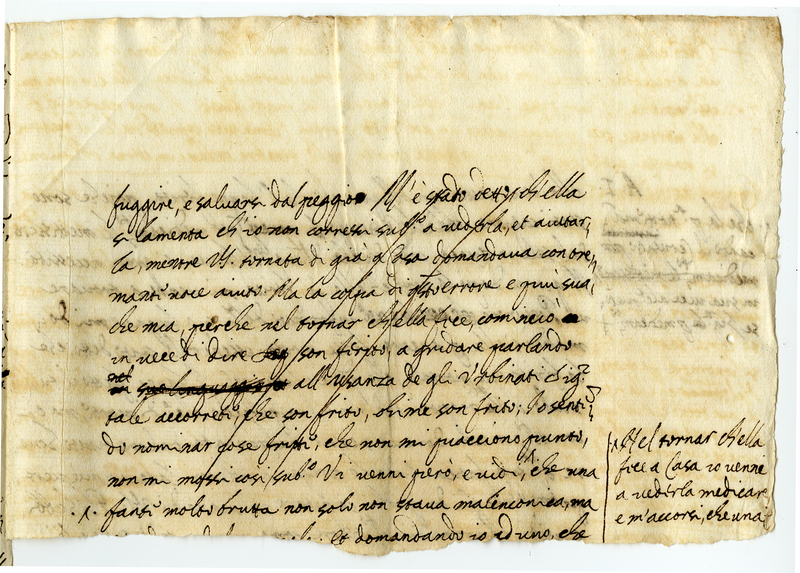 fuggire, e saluarsi dal peggio M'è stato detto ch'ella
si lamenta ch'io non corressi sub.o a vederla, et aiutar,
la, mentre VS. tornata di già a Casa domandaua con tre,
mante uoce aiuto. Ma la colpa di q.sto errore e più sua,
che mia, perche nel tornar ch'ella fece, cominciò
in uece di dire son ferito, a gridare parlando
nel
suo linguaggio all'usanza de gli Urbinati
tale accorreti, che son frito, ohime son frito; Io senti
do nominar cose fritte, che non mi piacciono punto,
non mi mossi così sub.o Vi venni però, e vidi, che una
.1. fante molto brutta non solo non staua malinconica, ma
et domandando io ad uno, che
1 Nel tornar ch'ella
fece a Casa io venni
a vederla medicare
e m'accorsi, che una